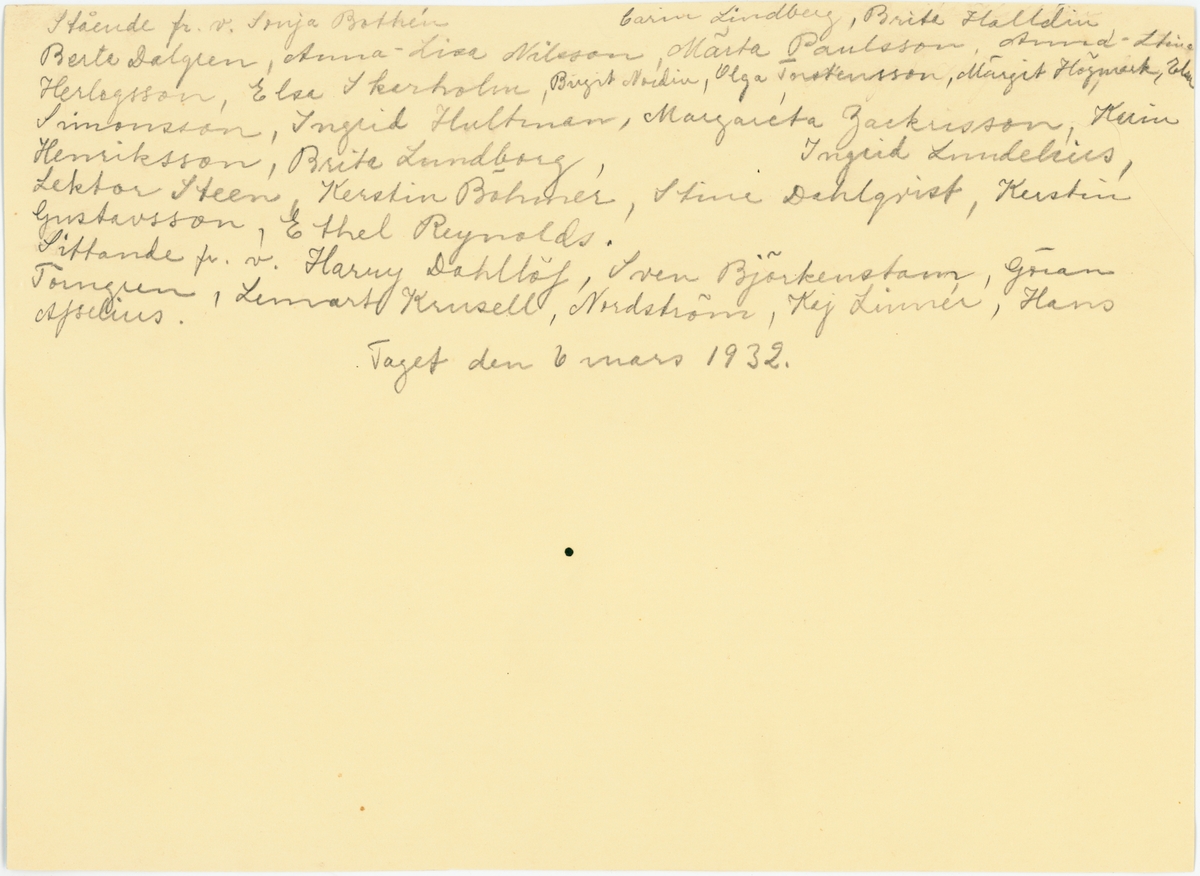 Stående fr. v. Sonja Bothén Carin Lindberg, Brita Halldin
Berta Dalgren, Anna-Lisa Nilsson, Märta Paulsson, Anna-Stina
Herlogsson, Elsa Skarholm, Birgit Nordin, Olga Torstensson, Märgit Högmark, Elsa
Simonsson, Ingrid Hultman, Margareta Zackrisson, Karin
Henriksson, Brita Lundborg, Ingrid Lundelius,
Lektor Steen, Kerstin Böhmer, Stina Dahlqvist, Kerstin
Gustavsson, Ethel Reynolds.
Sittande fr. v. Harry Dahllöf, Sven Björkenstam, Göran
Torngren, Lennart Krusell, Nordström, Kaj Linnér, Hans
Afselius.
Taget den 6 mars 1932.